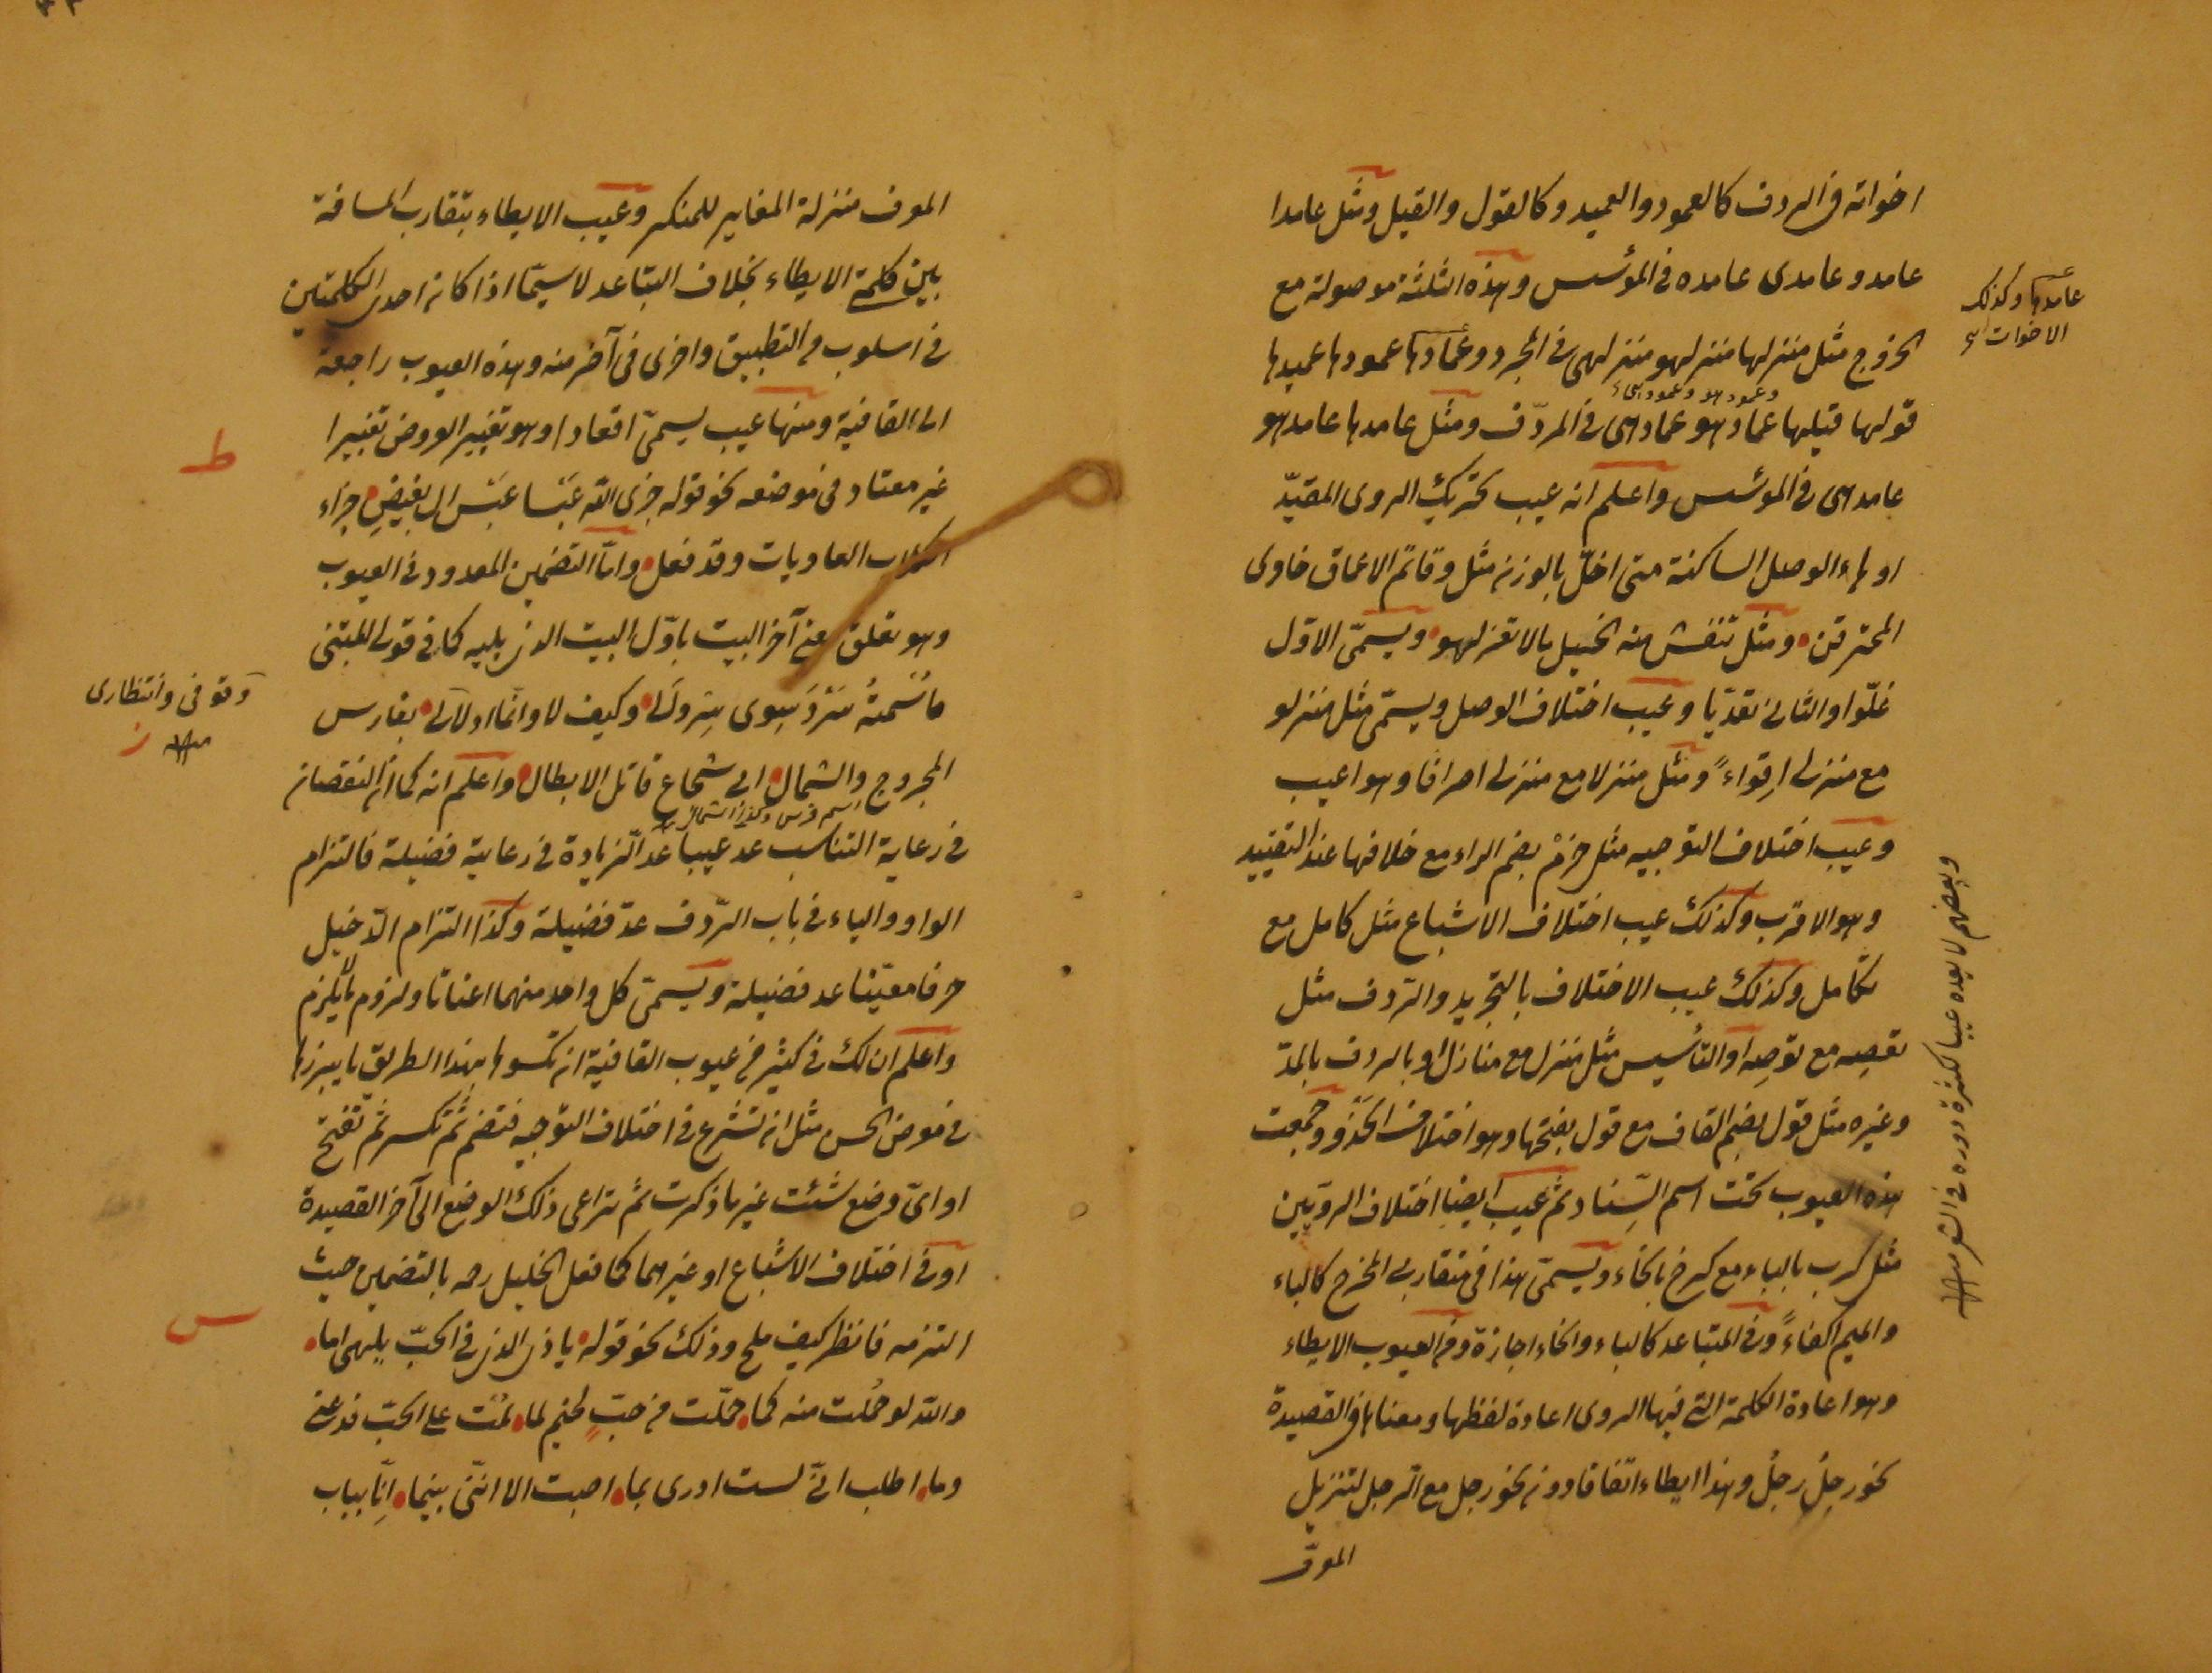 اخواته فى الردف كالعمود والعميد وكالقول والقيل ومثل عامدا
عامد وعامدى عامده فى المؤسس وهذه الثلثة موصولة مع
الخروج مثل منزلها منزلهو منزلهى فى المجرد وعمادها عمودها عميدها
وعمودهو وعمودهى
قولها قيلها عمادهو عمادهى فى المردّف ومثل عامدها عامدهو
عامدهى فى المؤسس واعلم انه عيب تحريك الروى المقيّد
او هاء الوصل الساكنة متى اخلّ بالوزن مثل وقاتم الاعماق خاوى
المخترقن ومثل تنفش منه الخيل ما لا تغزلهو ويسمّى الاوّل
غلّوا والثانى تعدّيا وعيب اختلاف الوصل ويسمّى مثل منزلو
مع منزلى اِقواءً ومثل منزلا مع منزلى اصرافا وهو اعيب
وعيب اختلاف التوجيه مثل حرُمْ بضم الراء مع خلافها عند التقييد
وهو الاقرب وكذلك عيب اختلاف الاشباع مثل كامل مع
تكامل وكذلك عيب الاختلاف بالتجريد والردف مثل
تعصه مع توصِه او التأسيس مثل منزل مع منازل او بالردف بالمدّ
وغيره مثل قول بضم القاف مع قول بفتحها وهو اختلاف الحَذْو وجمعت
هذه العيوب تحت اسم السِّناد ثم عيب ايضا اختلاف الرويين
مثل كرب بالباء مع كرخ بالخاء ويسمّى هذا فى متقاربى المخرج كالباء
والميم اكفاءً وفى المتباعد كالباء والخاء اجازة ومن العيوب الايطاء
وهو اعادة الكلمة التى فيها الروى اعادة لفظها ومعناها فى القصيدة
نحو رجلُ رجلُ وهذا ايطاء اتفاقا دون نحو رجل مع الرجل لتنزيل
المعرّف
عامدها وكذلك
الاخوات
وبعضهم لا يعده عيبا لكثرة دوره فى الشعر
المعرف منزلة المغاير للمنكر وعيب الايطاء بتقارب المسافة
بين كلمتى الايطاء بخلاف التباعد لا سيّما اذا كان احدى الكلمتين
فى اسلوب من التطبيق واخرى فى آخر منه وهذه العيوب راجعة
الى القافية ومنها عيب يسمىّ اقعادا وهو تغيير العروض تغييرا
غير معتاد فى موضعه نحو قوله جزى الله عَبْسا عبْس ال بغيضٍ جزاء
الكلاب العاويات وقد فعل وامّا التضمين المعدود فى العيوب
وهو تعلق معنى آخر البيت باوّل البيت الذى يليه كما فى قول المتنبى
ما سُمتهُ سَرْدَ سِوى سِروَلى وكيف لا وانّما ادلالى بفارس
المجروح والشمال ابى شجاع قاتل الابطال واعلم انه كما ان النقصان
اسم فرس وكذا الشمال
فى رعاية التناسب عد عيبا عدّ الزيادة فى رعايته فضيلة فالتزام
الواو والياء فى باب الردف عدّ فضيلة وكذا التزام الدّخيل
حرفا معيّنا عد فضيلة ويسمىّ كل واحد منهما اعناتا ولزوم ما لا يلزم
واعلم ان لك فى كثير من عيوب القافية ان تكسوها بهذا الطريق ما يبرزها
فى معرض الحسن مثل ان تشرع فى اختلاف التوجيه فتضم ثم تكسر ثم تفتح
او اىّ وضع شئت غير ما ذكرت ثم تراعى ذلك الوضع الى آخر القصيدة
او فى اختلاف الاشباع او غيرهما كما فعل الخليل رحمه بالتضمين حيث
التزمه فانظر كيف ملح وذلك نحو قوله يا ذى الذى فى الحبّ يلهى اما
والله لو حُملت منه كما حمّلت من حبّ لخيم لما لمت على الحبّ فدعنى
وما اطلب انّى لست ادرى بما اصبت الا اننّى بينما انا بباب
وقوفى وانتظارى
ط
س